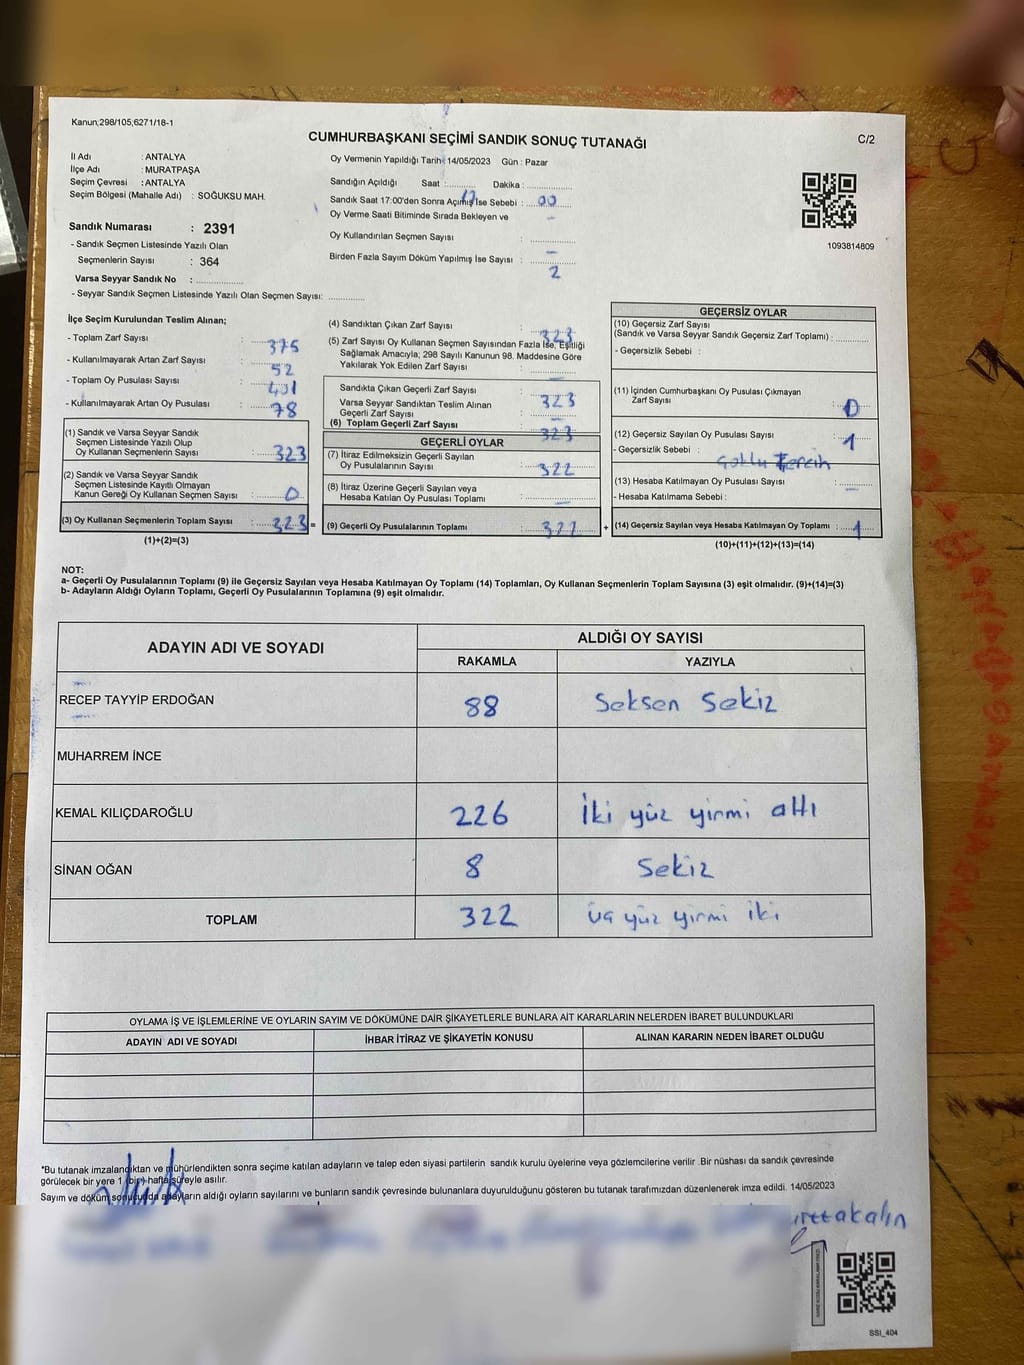 Kanun;298/105;6271/18-1
CUMHURBAŞKANI SEÇİMİ SANDIK SONUÇ TUTANAĞI
C/2
İl Adı : ANTALYA
İlçe Adı : MURATPAŞA
Seçim Çevresi : ANTALYA
Seçim Bölgesi (Mahalle Adı) : SOĞUKSU MAH.
Sandık Numarası : 2391
- Sandık Seçmen Listesinde Yazılı Olan
Seçmenlerin Sayısı : 364
Varsa Seyyar Sandık No : ..............
- Seyyar Sandık Seçmen Listesinde Yazılı Olan Seçmen Sayısı: ............
Oy Vermenin Yapıldığı Tarih: 14/05/2023 Gün : Pazar
Sandığın Açıldığı Saat :.......... Dakika : ..............
17 00
Sandık Saat 17:00'den Sonra Açımış İse Sebebi : ..............
Oy Verme Saati Bitiminde Sırada Bekleyen ve
-
Oy Kullandırılan Seçmen Sayısı : ..............
-
Birden Fazla Sayım Döküm Yapılmış İse Sayısı : ..............
2
1093814809
İlçe Seçim Kurulundan Teslim Alınan;
- Toplam Zarf Sayısı : 375
- Kullanılmayarak Artan Zarf Sayısı : 52
- Toplam Oy Pusulası Sayısı : 401
- Kullanılmayarak Artan Oy Pusulası : 78
(1) Sandık ve Varsa Seyyar Sandık
Seçmen Listesinde Yazılı Olup
Oy Kullanan Seçmenlerin Sayısı : 323
(2) Sandık ve Varsa Seyyar Sandık
Seçmen Listesinde Kayıtlı Olmayan
Kanun Gereği Oy Kullanan Seçmen Sayısı : 0
(3) Oy Kullanan Seçmenlerin Toplam Sayısı : 323 =
(1)+(2)=(3)
(4) Sandıktan Çıkan Zarf Sayısı : 323
(5) Zarf Sayısı Oy Kullanan Seçmen Sayısından Fazla İse, Eşitliği
Sağlamak Amacıyla; 298 Sayılı Kanunun 98. Maddesine Göre
Yakılarak Yok Edilen Zarf Sayısı : -
Sandıkta Çıkan Geçerli Zarf Sayısı : 323
Varsa Seyyar Sandıktan Teslim Alınan
Geçerli Zarf Sayısı : -
(6) Toplam Geçerli Zarf Sayısı : 323
GEÇERLİ OYLAR
(7) İtiraz Edilmeksizin Geçerli Sayılan
Oy Pusulalarının Sayısı : 322
(8) İtiraz Üzerine Geçerli Sayılan veya
Hesaba Katılan Oy Pusulası Toplamı : -
(9) Geçerli Oy Pusulalarının Toplamı : 322 +
GEÇERSİZ OYLAR
(10) Geçersiz Zarf Sayısı
(Sandık ve Varsa Seyyar Sandık Geçersiz Zarf Toplamı) : ..........
- Geçersizlik Sebebi :
(11) İçinden Cumhurbaşkanı Oy Pusulası Çıkmayan
Zarf Sayısı : 0
(12) Geçersiz Sayılan Oy Pusulası Sayısı : 1
- Geçersizlik Sebebi : Çoklu tercih
(13) Hesaba Katılmayan Oy Pusulası Sayısı : -
- Hesaba Katılmama Sebebi :
(14) Geçersiz Sayılan veya Hesaba Katılmayan Oy Toplamı : 1
(10)+(11)+(12)+(13)=(14)
NOT:
a- Geçerli Oy Pusulalarının Toplamı (9) ile Geçersiz Sayılan veya Hesaba Katılmayan Oy Toplamı (14) Toplamları, Oy Kullanan Seçmenlerin Toplam Sayısına (3) eşit olmalıdır. (9)+(14)=(3)
b- Adayların Aldığı Oyların Toplamı, Geçerli Oy Pusulalarının Toplamına (9) eşit olmalıdır.
ADAYIN ADI VE SOYADI
ALDIĞI OY SAYISI
RAKAMLA YAZIYLA
RECEP TAYYİP ERDOĞAN 88 Seksen Sekiz
MUHARREM İNCE
KEMAL KILIÇDAROĞLU 226 İki yüz yirmi altı
SİNAN OĞAN 8 Sekiz
TOPLAM 322 üç yüz yirmi iki
OYLAMA İŞ VE İŞLEMLERİNE VE OYLARIN SAYIM VE DÖKÜMÜNE DAİR ŞİKAYETLERLE BUNLARA AİT KARARLARIN NELERDEN İBARET BULUNDUKLARI
ADAYIN ADI VE SOYADI İHBAR İTİRAZ VE ŞİKAYETİN KONUSU ALINAN KARARIN NEDEN İBARET OLDUĞU
*Bu tutanak imzalandıktan ve mühürlendikten sonra seçime katılan adayların ve talep eden siyasi partilerin sandık kurulu üyelerine veya gözlemcilerine verilir .Bir nüshası da sandık çevresinde
görülecek bir yere 1 (bir) hafta süreyle asılır.
Sayım ve döküm sonucunda adayların aldığı oyların sayılarını ve bunların sandık çevresinde bulunanlara duyurulduğunu gösteren bu tutanak tarafımızdan düzenlenerek imza edildi. 14/05/2023
SSI_404